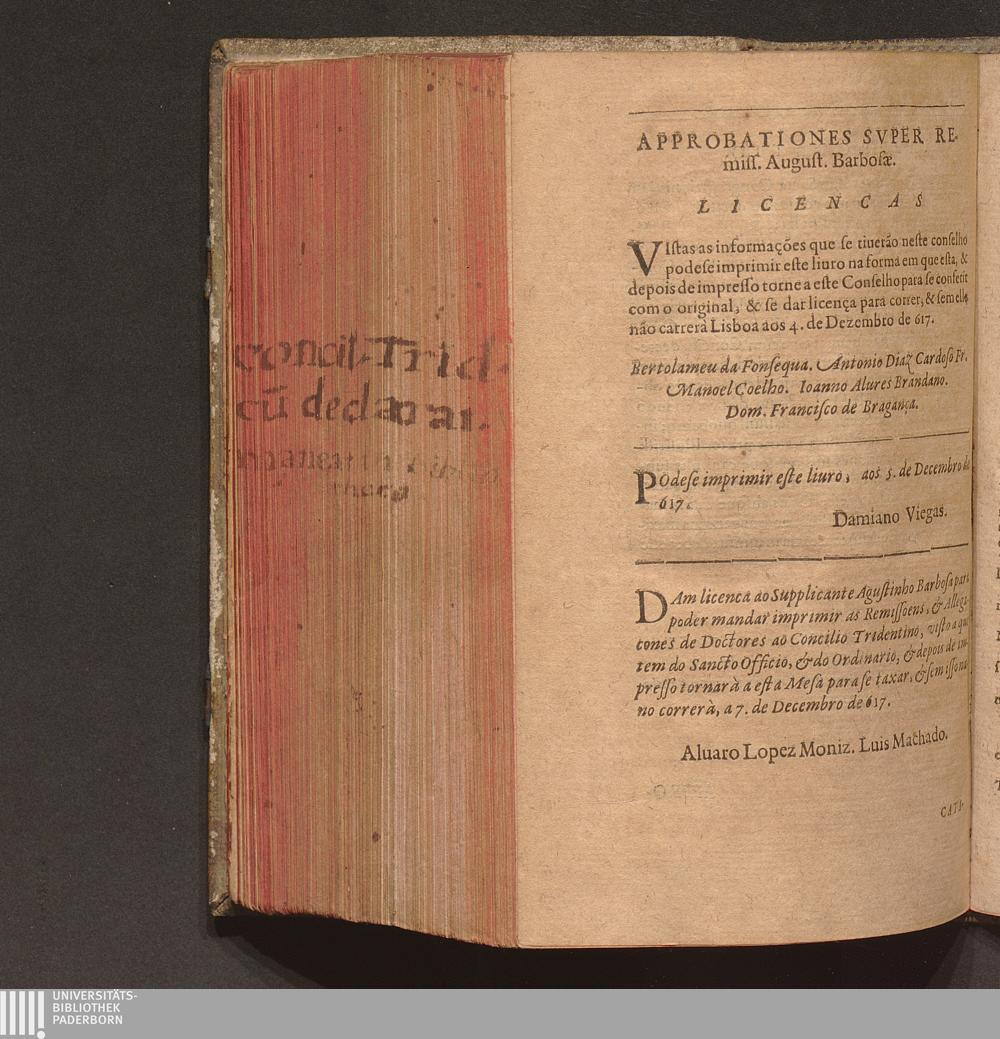 concil. Trid.
cū declarar.
APPROBATIONES SVPER RE-
miſſ. Auguſt. Barboſæ.
LICENCAS
VIſtas as informações que ſe tiuerão neſte conſelho
podeſe imprimir eſte liuro na forma em que eſta, &
depois de impreſſo torne a eſte Conſelho para ſe conferir
com o original, & ſe dar licença para correr, & ſem ella
não carrerà Lisboa aos 4. de Dezembro de 617.
Bertolameu da Fonſequa. Antonio Diaz Cardoſo Fr.
Manoel Coelho. Ioanno Alures Brandano.
Dom. Franciſco de Bragança.
POdeſe imprimir eſte liuro, aos 5. de Decembro de
617.
Damiano Viegas.
DAm licenca ao Supplicante Aguſtinho Barboſa para
poder mandar imprimir as Remiſſoens, & Allega-
cones de Doctores ao Concilio Tridentino, viſto a que
tem do Sancto Officio, & do Ordinario, & depois de im-
preſſo tornarà a eſta Meſa para ſe taxar, & ſem iſſo na
no correrà, a 7. de Decembro de 617.
Aluaro Lopez Moniz. Luis Machado.
CATA-
UNIVERSITÄTS-
BIBLIOTHEK
PADERBORN